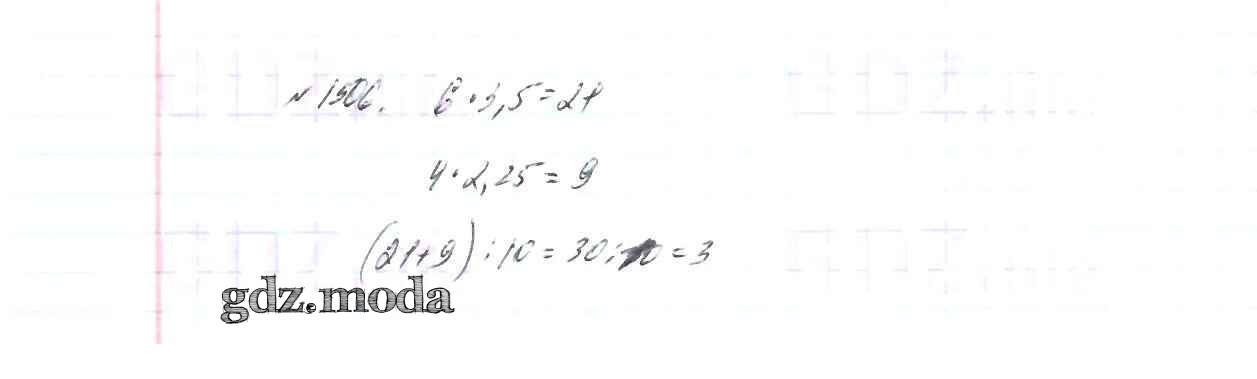 № 1506. 6 · 3,5 = 21
4 · 2,25 = 9
(21+9) : 10 = 30 : 10 = 3
gdz.moda